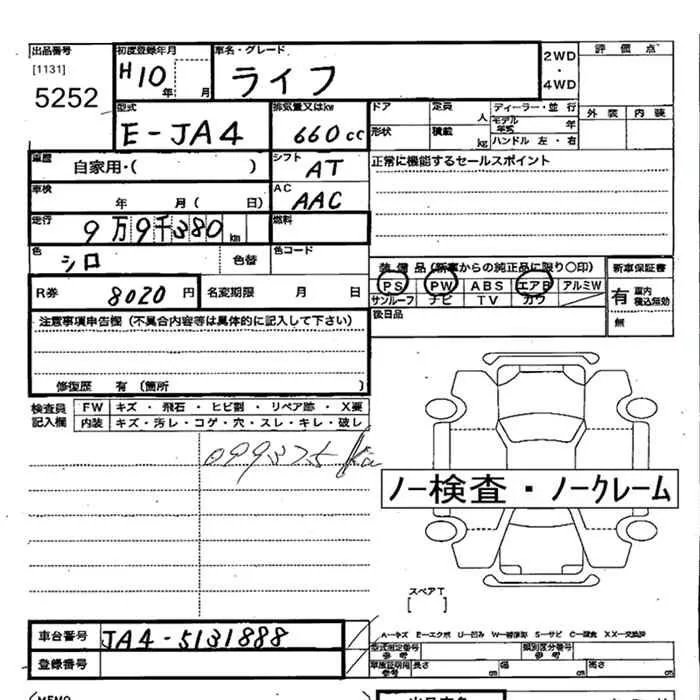 出品番号
[1131]
5252
初度登録年月
H10年 月
車名・グレード
ライフ
2WD
・
4WD
評価点
外装 内装
型式
E-JA4
排気量又はkw
660cc
ドア
定員 人
ディーラー・並行
モデル年式 年
形状
積載 kg
ハンドル 左・右
車歴
自家用・( )
シフト
AT
正常に機能するセールスポイント
車検
年 月( 日)
AC
AAC
走行
9万9千380km
燃料
色
シロ
色替
色コード
装備品(新車からの純正品に限り○印)
PS PW ABS エアB アルミW
サンルーフ ナビ TV カワ
後日品
新車保証書
有 車内積込無効
無
R券
8020円
名変期限 月 日
注意事項申告欄(不具合内容等は具体的に記入して下さい)
修復歴 有(箇所 )
検査員記入欄
FW キズ・飛石・ヒビ割・リペア跡・X要
内装 キズ・汚レ・コゲ・穴・スレ・キレ・破レ
099375km
ノー検査・ノークレーム
スペアT
[ ]
A-キズ E-エクボ U-凹み W-補修跡 S-サビ C-腐食 XX-交換跡
車台番号
JA4-5131888
型式指定番号 参考
類別区分番号 参考
登録番号
車庫証明用参考
長さ cm
幅 cm
高さ cm
MEMO